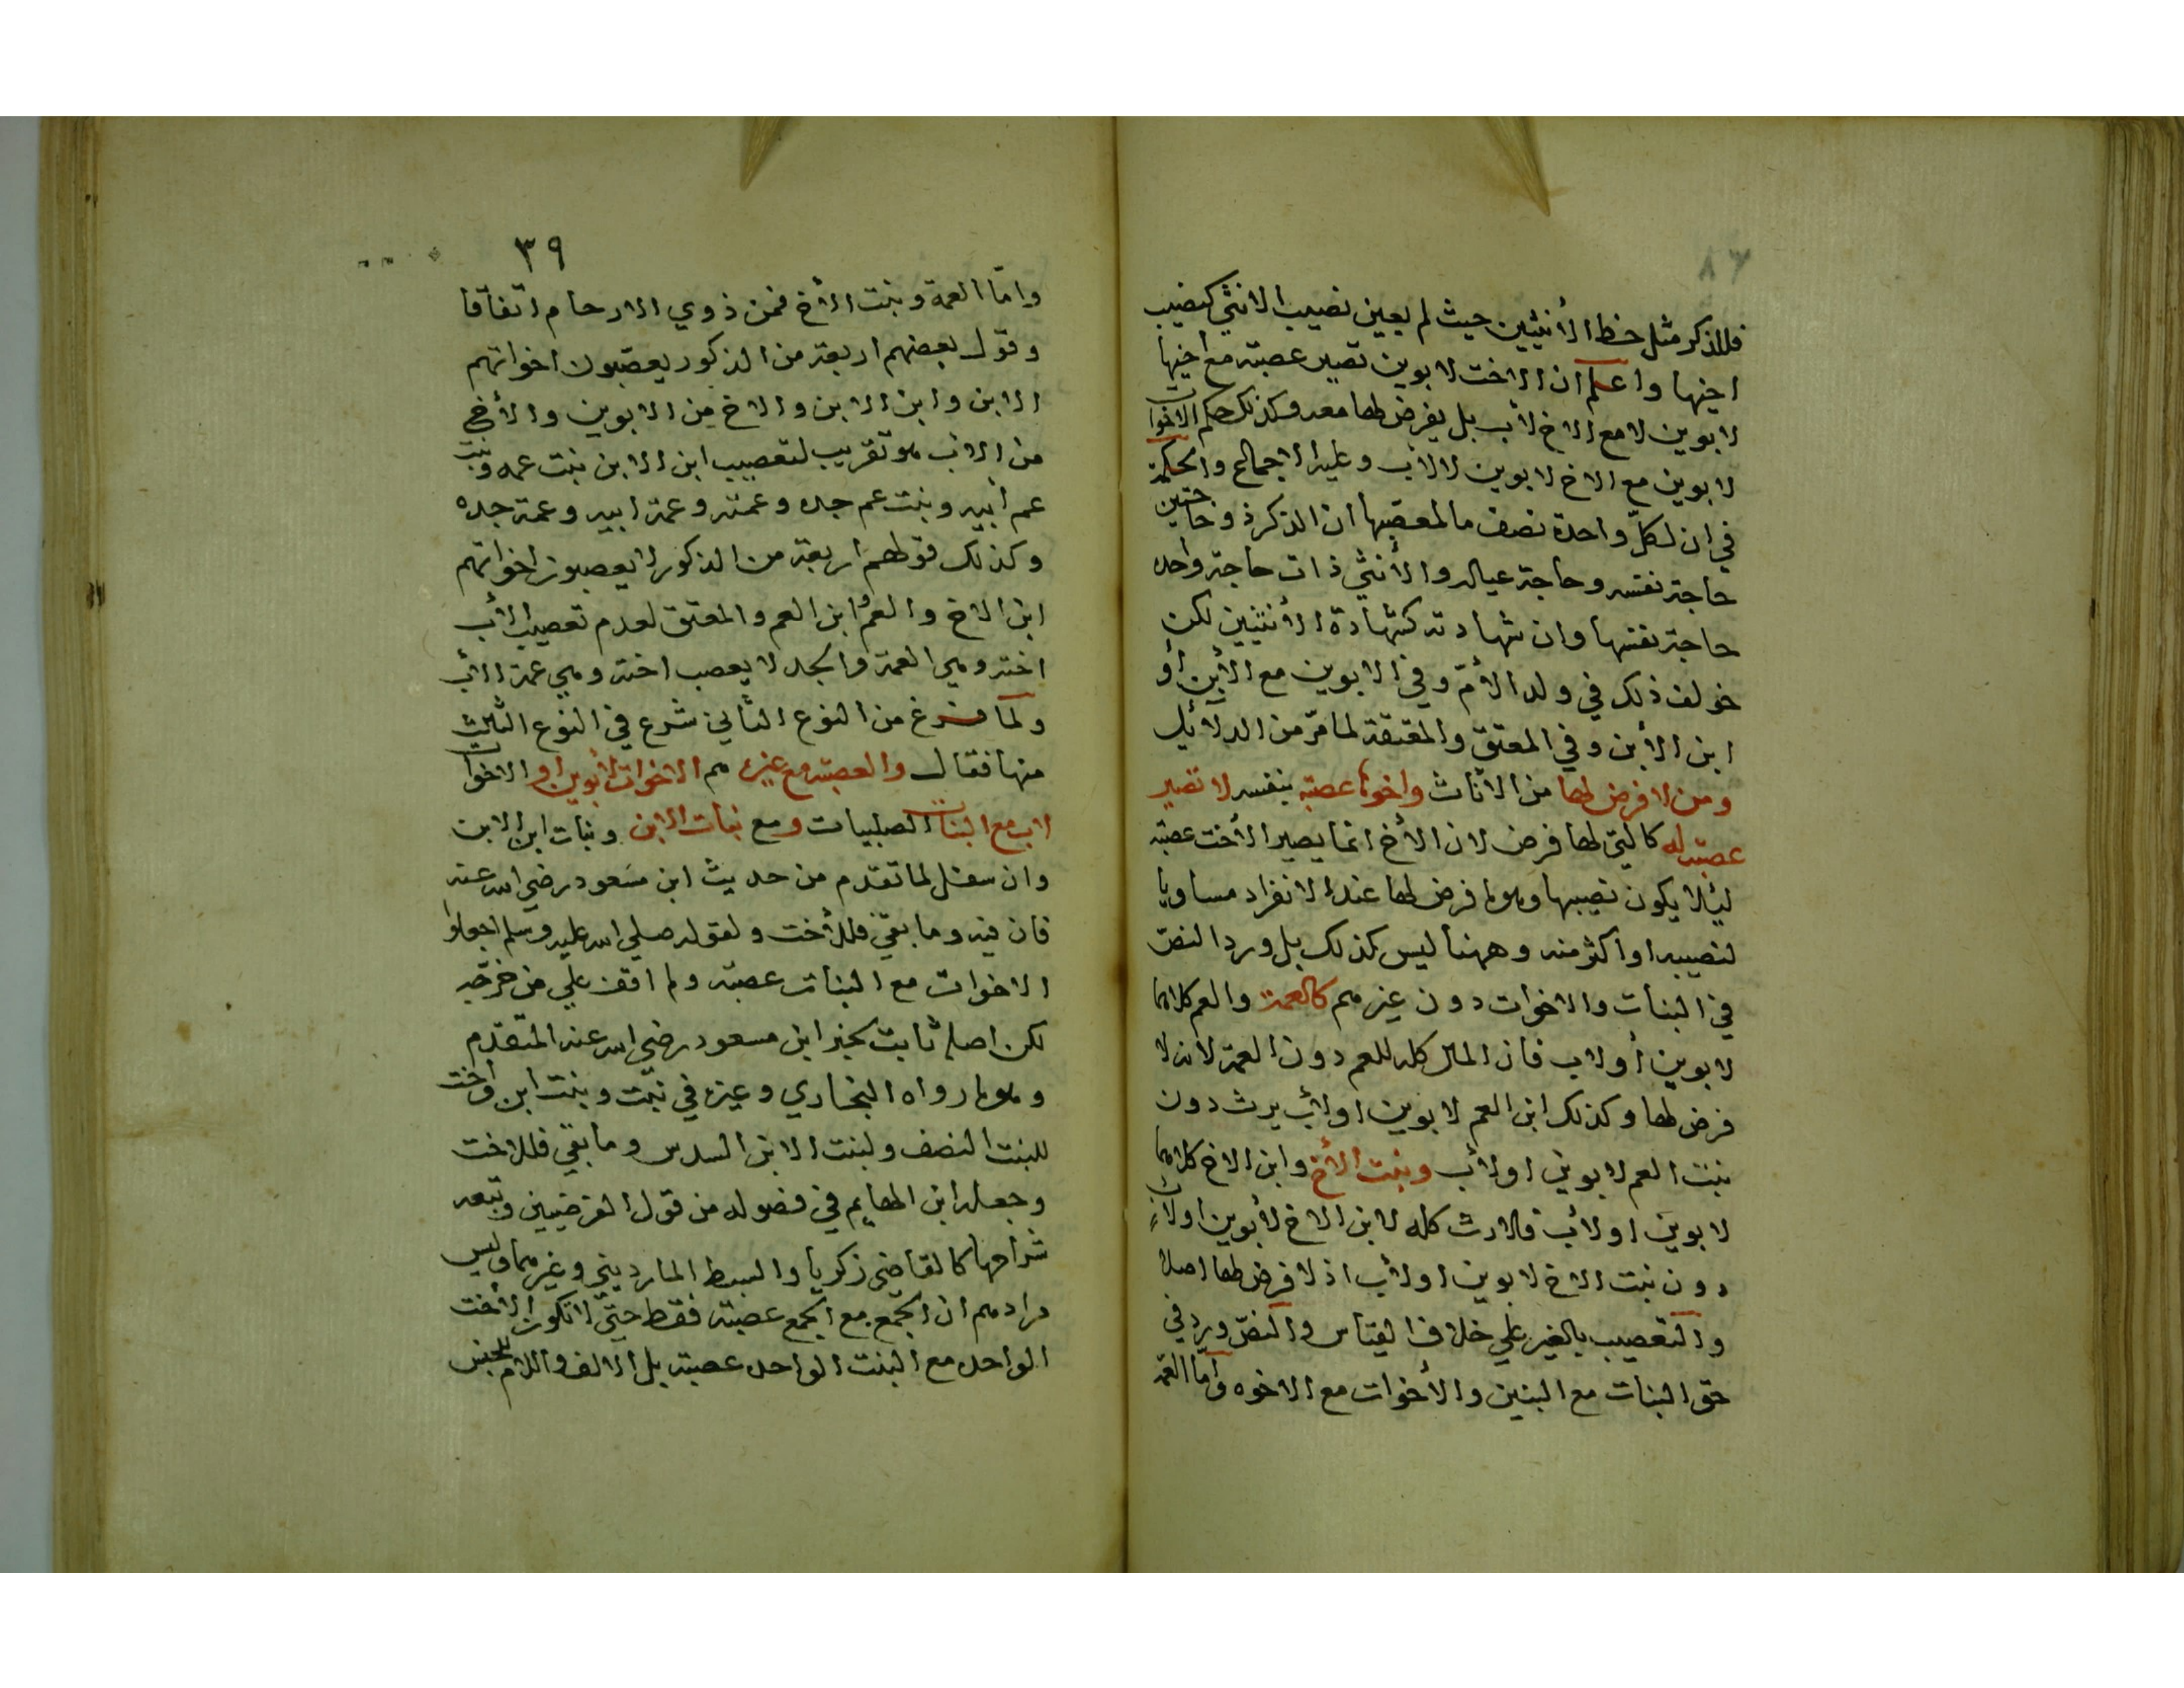 ٨٦
فللذكر مثل حظ الأنثيين حيث لم يعين نصيب الانثي كنصيب
اخيها واعلم ان الاخت لابوين تصير عصبة مع اخيها
لابوين لا مع الاخ لاب بل يفرض لها معه وكذلك حكم الاخوات
لابوين مع الاخ لابوين لا لأب وعليه الاجماع والحكمة
في ان لكلّ واحدة نصف ما لمعصبها ان الذكر ذو حاجتين
حاجة نفسه وحاجة عياله والأنثي ذات حاجة واحده
حاجة نفسها وان شهادته كشهادة الأنثيين لكن
خولف ذلك في ولد الأمّ وفي الابوين مع الأبن أو
ابن الأبن وفي المعتق والمعتقة لما مرّ من الدلائل
ومن لا فرض لها من الأناث واخوها عصبة بنفسه لا تصير
عصبة له كالتي لها فرض لان الأخ انما يصير الأخت عصبة
لئلا يكون نصيبها وهو ما فرض لها عند الانفراد مساويا
لنصيبه او اكثر منه وههنا ليس كذلك بل ورد النصّ
في البنات والاخوات دون غيرهم كالعمة والعم كلاهما
لابوين أو لاب فان المال كله للعم دون العمة لأنه لا
فرض لها وكذلك ابن العم لابوين او لأب يرث دون
بنت العم لابوين او لأب وبنت الأخ وابن الاخ كلاهما
لابوين او لأب فالارث كله لابن الاخ لأبوين او لأب
دون بنت الاخ لابوين او لأب اذ لا فرض لها اصلا
والتعصيب بالغير علي خلاف القياس والنصّ ورد في
حق البنات مع البنين والأخوات مع الاخوه وأما العمة
٣٩
وامّا العمة وبنت الأخ فمن ذوي الارحام اتفاقا
وقول بعضهم اربعة من الذكور يعصّبون اخواتهم
الابن وابن الابن والاخ من الابوين والأخ
من الاب هو تقريب لتعصيب ابن الابن بنت عمه وبنت
عم أبيه وبنت عم جده وعمته وعمة ابيه وعمة جده
وكذلك قولهم اربعة من الذكور لا يعصبون اخواتهم
ابن الاخ والعم وابن العم والمعتق لعدم تعصيب الأب
اخته وهي العمة والجد لا يعصب اخته وهي عمة الأب
ولمّا فرغ من النوع الثاني شرع في النوع الثالث
منها فقال والعصبة مع غيره هم الاخوات لأبوين او الاخوات
لاب مع البنات الصلبيات ومع بنات الابن وبنات ابن الابن
وان سفل لما تقدم من حديث ابن مسَعود رضي الله عنه
فان فيه وما بقي فللأخت ولقوله صلي الله عليه وسلم اجعلوا
الاخوات مع البنات عصبة ولم اقف علي من خرّجه
لكن اصله ثابت بخبر ابن مسعود رضي الله عنه المتقدم
وهو ما رواه البخاري وغيره في بنت وبنت ابن وأخت
للبنت النصف ولبنت الابن السدس وما بقي فللاخت
وجعله ابن الهايم في فصوله من قول الفرضيين وتبعه
شراحها كالقاضي زكريا والسبط المارديني وغيرهما وليس
مرادهم ان الجمع مع الجمع عصبة فقط حتي لا تكون الأخت
الواحده مع البنت الواحده عصبة بل الالف واللام للجنس